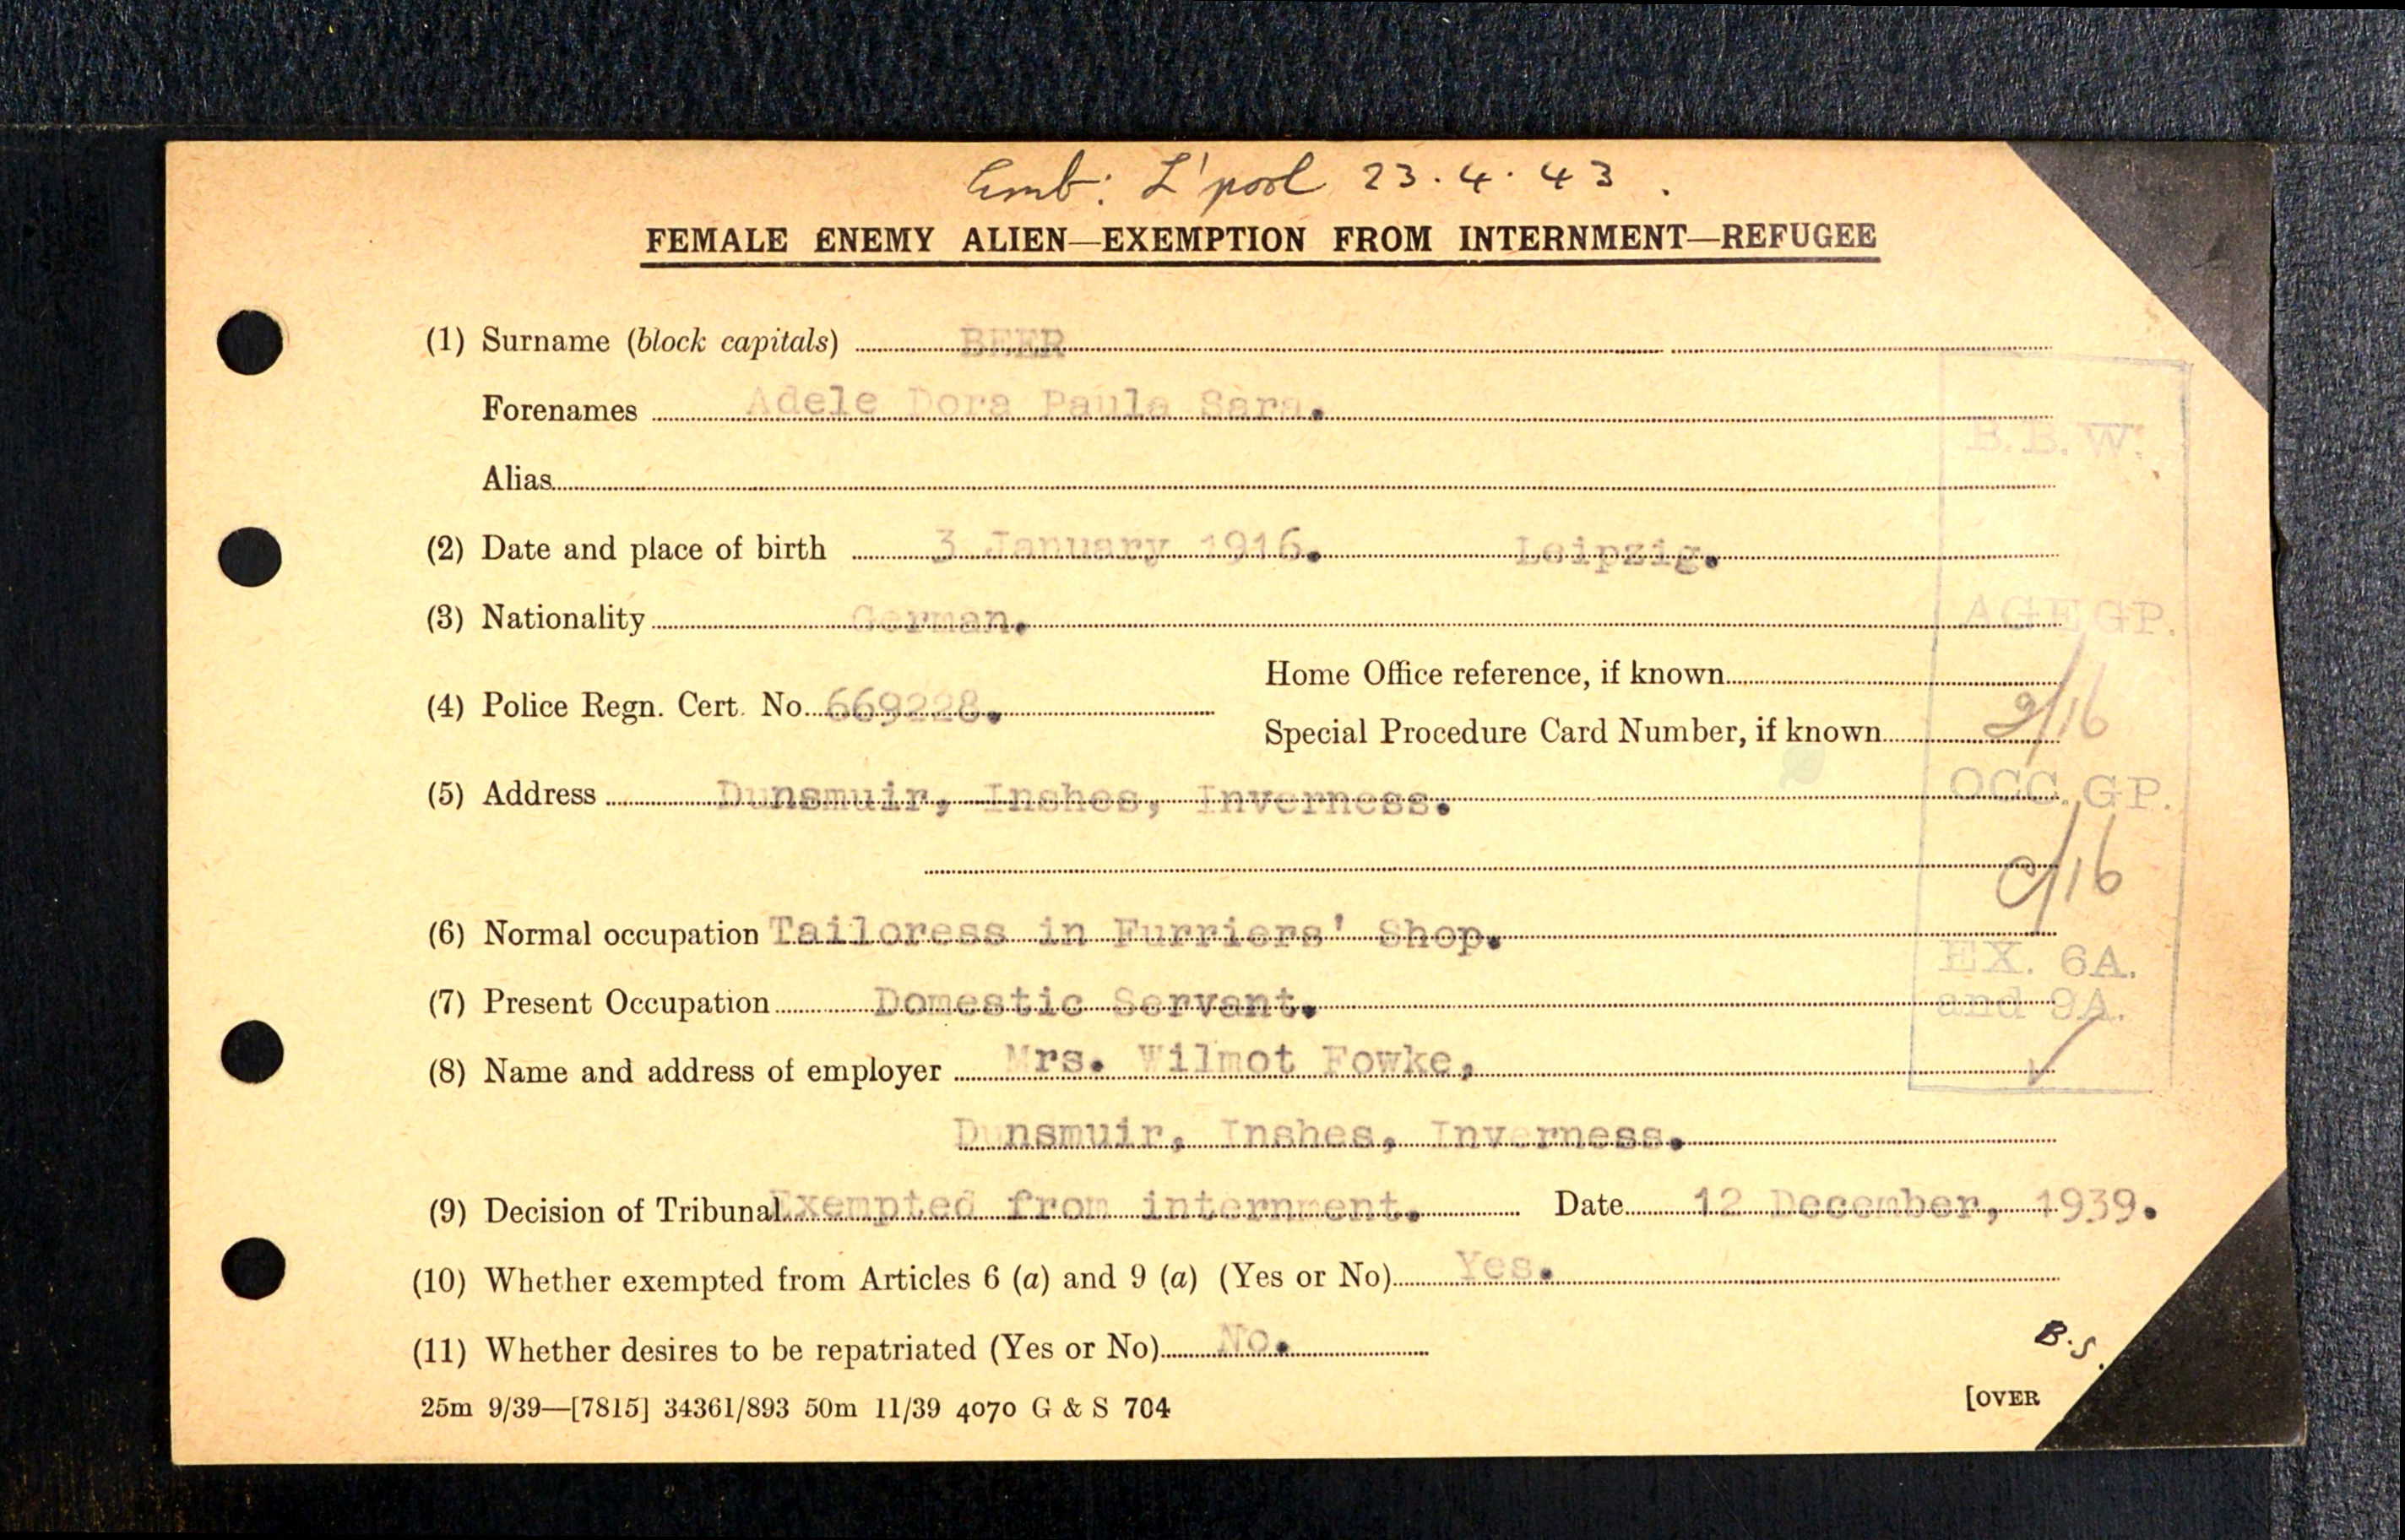 Emb: L'pool 23.4.43.
FEMALE ENEMY ALIEN—EXEMPTION FROM INTERNMENT—REFUGEE
(1) Surname (block capitals) BEER
Forenames Adele Dora Paula Sara.
Alias
E.B.W.
(2) Date and place of birth 3 January 1916. Leipzig.
(3) Nationality German.
AGE GP.
Home Office reference, if known
(4) Police Regn. Cert. No. 669228.
Special Procedure Card Number, if known
OCC. GP.
(5) Address Dunsmuir, Inshes, Inverness.
(6) Normal occupation Tailoress in Furriers' Shop.
EX. 6A.
(7) Present Occupation Domestic Servant.
and 9A.
(8) Name and address of employer Mrs. Wilmot Fowke,
Dunsmuir, Inshes, Inverness.
(9) Decision of Tribunal Exempted from internment. Date 12 December, 1939.
(10) Whether exempted from Articles 6 (a) and 9 (a) (Yes or No) Yes.
(11) Whether desires to be repatriated (Yes or No) No.
B.S.
25m 9/39—[7815] 34361/893 50m 11/39 4070 G & S 704
[OVER